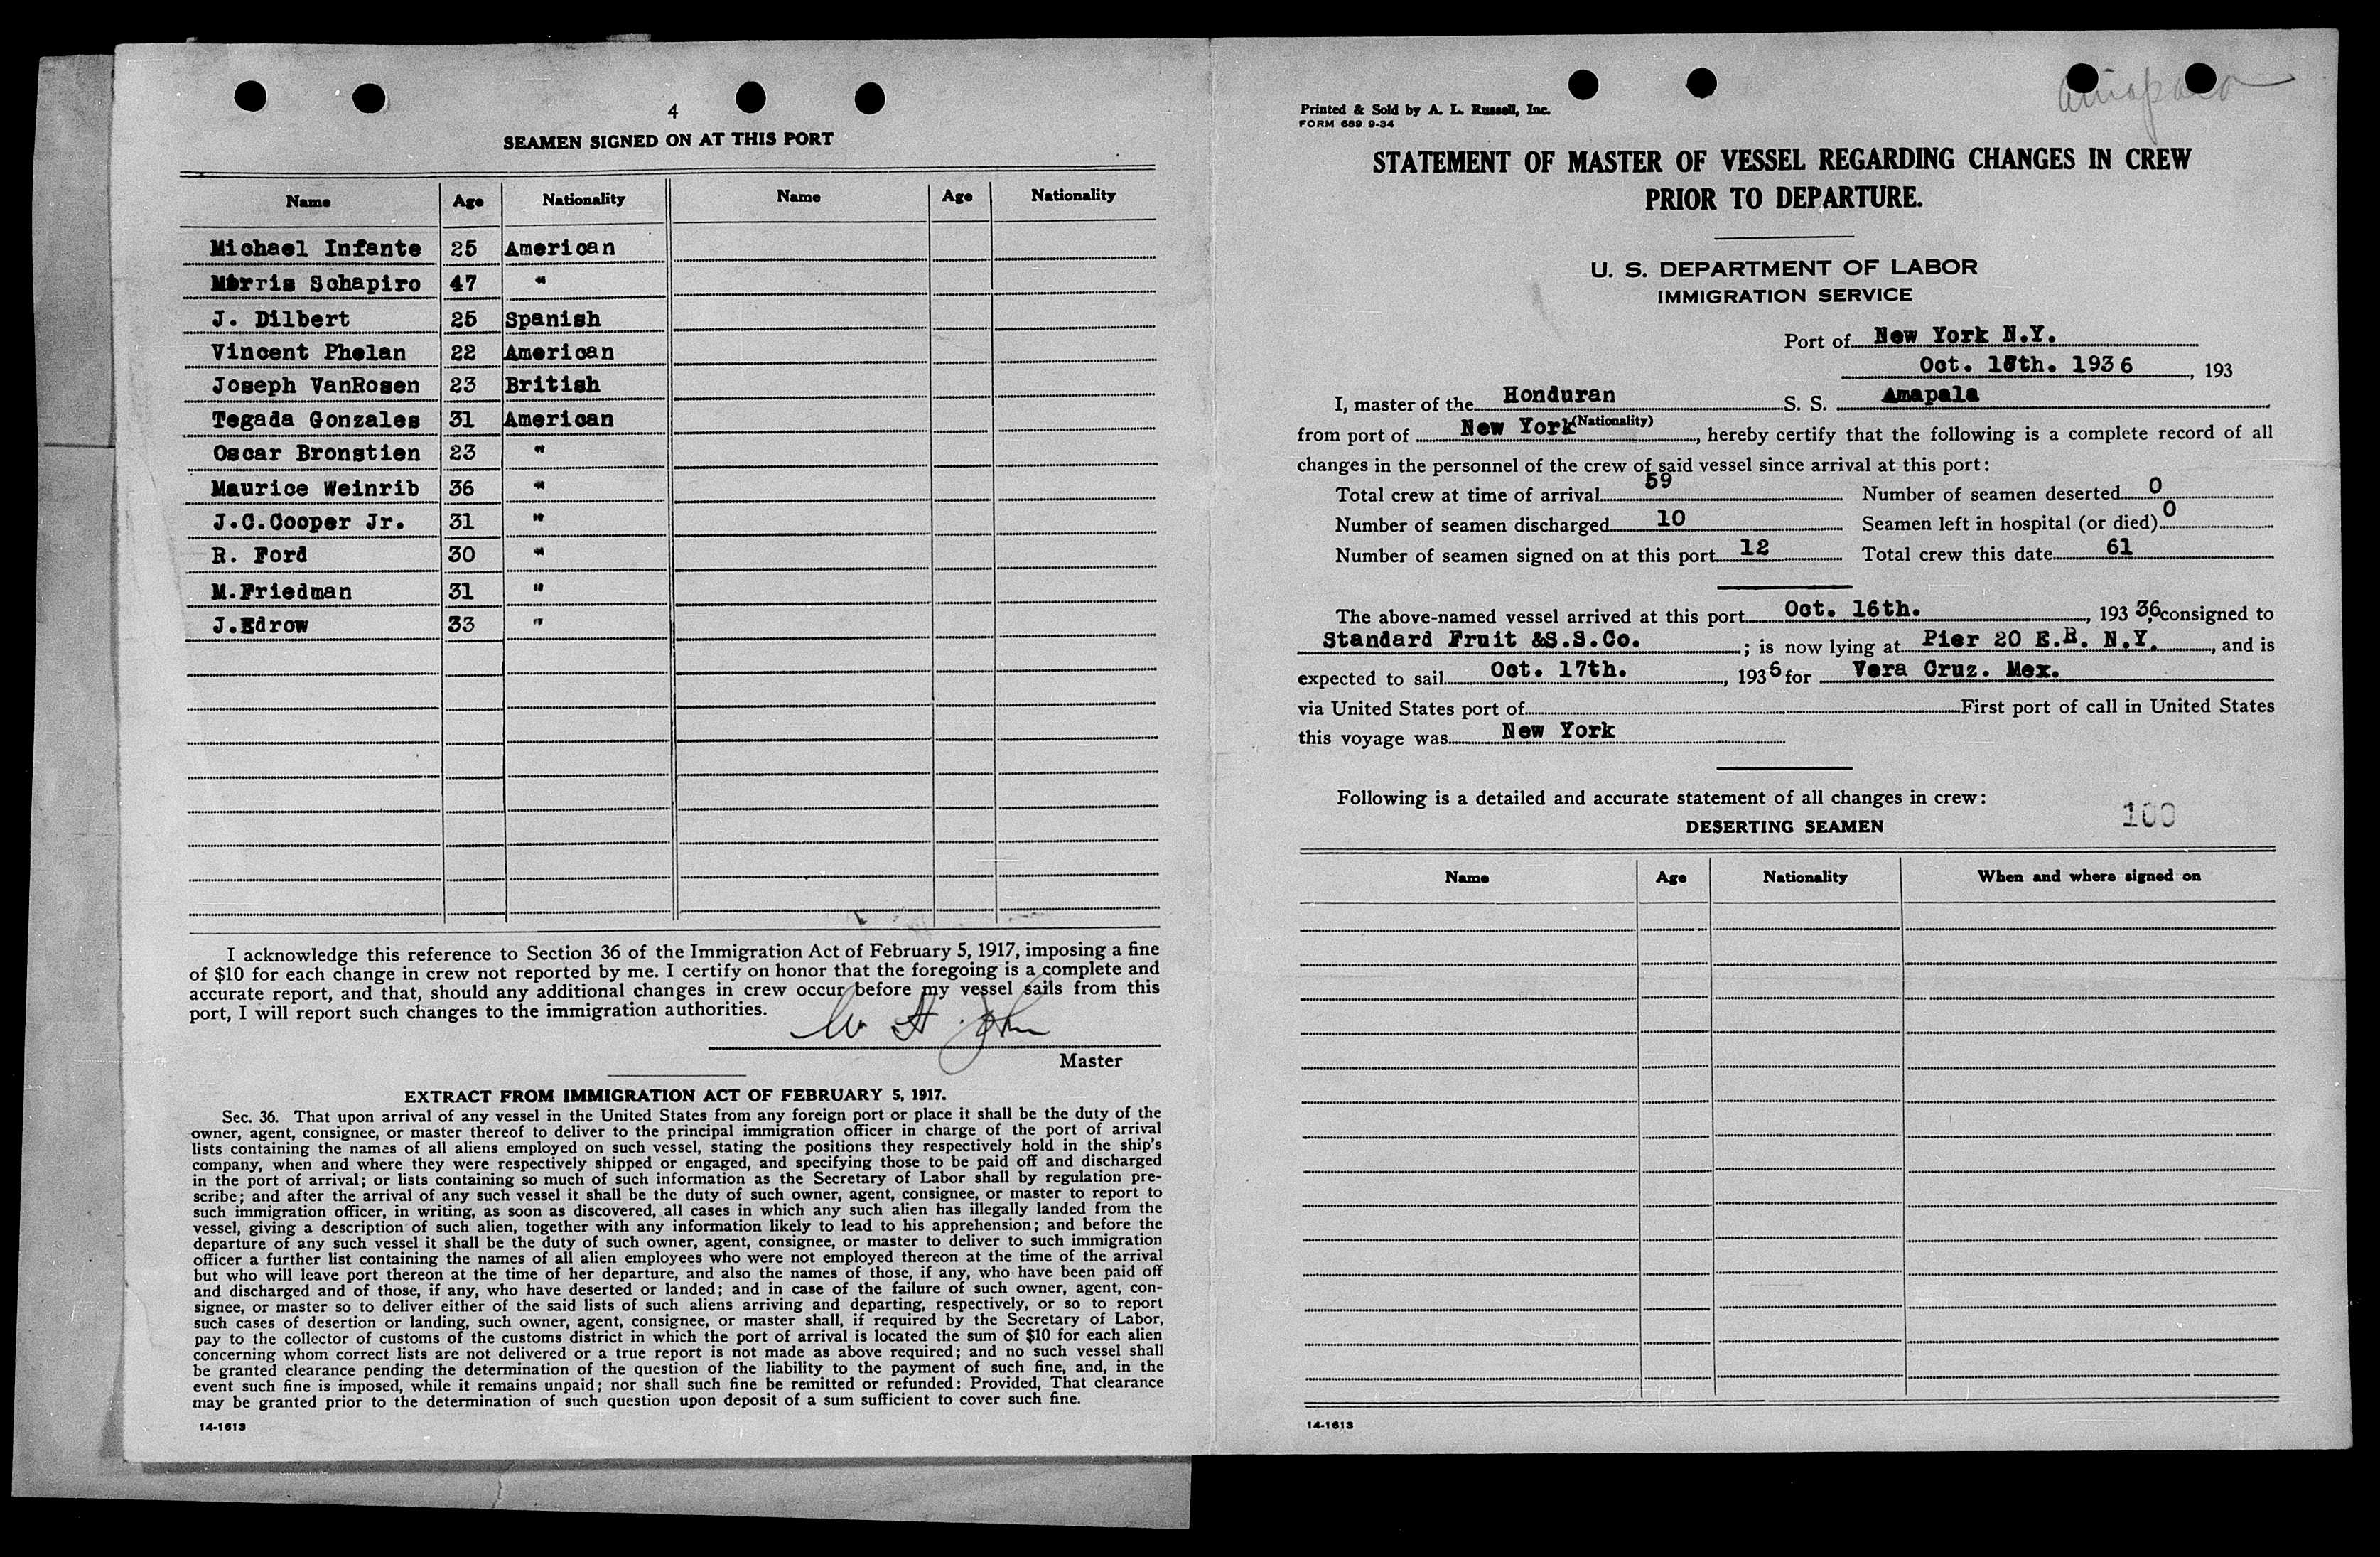 4
SEAMEN SIGNED ON AT THIS PORT
Name Age Nationality Name Age Nationality
Michael Infante 25 American
Morris Schapiro 47 "
J. Dilbert 25 Spanish
Vincent Phelan 22 American
Joseph VanRosen 23 British
Tegada Gonzales 31 American
Oscar Bronstien 23 "
Maurice Weinrib 36 "
J.C.Cooper Jr. 31 "
R. Ford 30 "
M.Friedman 31 "
J.Edrow 33 "
I acknowledge this reference to Section 36 of the Immigration Act of February 5, 1917, imposing a fine
of $10 for each change in crew not reported by me. I certify on honor that the foregoing is a complete and
accurate report, and that, should any additional changes in crew occur before my vessel sails from this
port, I will report such changes to the immigration authorities.
Master
EXTRACT FROM IMMIGRATION ACT OF FEBRUARY 5, 1917.
Sec. 36. That upon arrival of any vessel in the United States from any foreign port or place it shall be the duty of the
owner, agent, consignee, or master thereof to deliver to the principal immigration officer in charge of the port of arrival
lists containing the names of all aliens employed on such vessel, stating the positions they respectively hold in the ship's
company, when and where they were respectively shipped or engaged, and specifying those to be paid off and discharged
in the port of arrival; or lists containing so much of such information as the Secretary of Labor shall by regulation pre-
scribe; and after the arrival of any such vessel it shall be the duty of such owner, agent, consignee, or master to report to
such immigration officer, in writing, as soon as discovered, all cases in which any such alien has illegally landed from the
vessel, giving a description of such alien, together with any information likely to lead to his apprehension; and before the
departure of any such vessel it shall be the duty of such owner, agent, consignee, or master to deliver to such immigration
officer a further list containing the names of all alien employees who were not employed thereon at the time of the arrival
but who will leave port thereon at the time of her departure, and also the names of those, if any, who have been paid off
and discharged and of those, if any, who have deserted or landed; and in case of the failure of such owner, agent, con-
signee, or master so to deliver either of the said lists of such aliens arriving and departing, respectively, or so to report
such cases of desertion or landing, such owner, agent, consignee, or master shall, if required by the Secretary of Labor,
pay to the collector of customs of the customs district in which the port of arrival is located the sum of $10 for each alien
concerning whom correct lists are not delivered or a true report is not made as above required; and no such vessel shall
be granted clearance pending the determination of the question of the liability to the payment of such fine, and, in the
event such fine is imposed, while it remains unpaid; nor shall such fine be remitted or refunded: Provided, That clearance
may be granted prior to the determination of such question upon deposit of a sum sufficient to cover such fine.
14-1613
Amapala
Printed & Sold by A. L. Russell, Inc.
FORM 689 9-34
STATEMENT OF MASTER OF VESSEL REGARDING CHANGES IN CREW
PRIOR TO DEPARTURE.
U. S. DEPARTMENT OF LABOR
IMMIGRATION SERVICE
Port of New York N.Y.
Oct. 1th. 1936, 193
I, master of the Honduran S. S. Amapala
(Nationality)
from port of New York, hereby certify that the following is a complete record of all
changes in the personnel of the crew of said vessel since arrival at this port:
Total crew at time of arrival 59 Number of seamen deserted 0
Number of seamen discharged 10 Seamen left in hospital (or died) 0
Number of seamen signed on at this port 12 Total crew this date 61
The above-named vessel arrived at this port Oct. 16th., 193 36, consigned to
Standard Fruit &S.S.Co.; is now lying at Pier 20 E.R. N.Y., and is
expected to sail Oct. 17th., 1936 for Vera Cruz. Mex.
via United States port of First port of call in United States
this voyage was New York
Following is a detailed and accurate statement of all changes in crew:
100
DESERTING SEAMEN
Name Age Nationality When and where signed on
14-1613